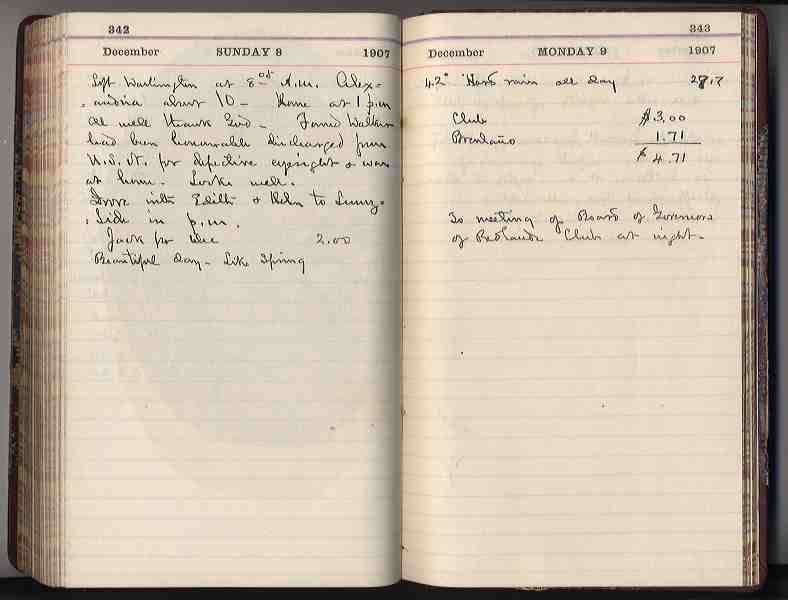 342
December SUNDAY 8 1907
Left Washington at 8 00 A.M. Alex=
andria about 10 - Home at 1 p.m
all well thank God - Found Walker
had been honourable discharged from
U.S.N. for defective eyesight & was
at home. Looks well.
Drove with Edith & Helen to Sunny=
Side in p.m.
Jack for Dec 2.00
Beautiful day - Like Spring
343
December MONDAY 9 1907
42° Hard rain all day
Club $3.00
Brentano 1.71
$4.71
To meeting of Board of Governors
of Club at night -